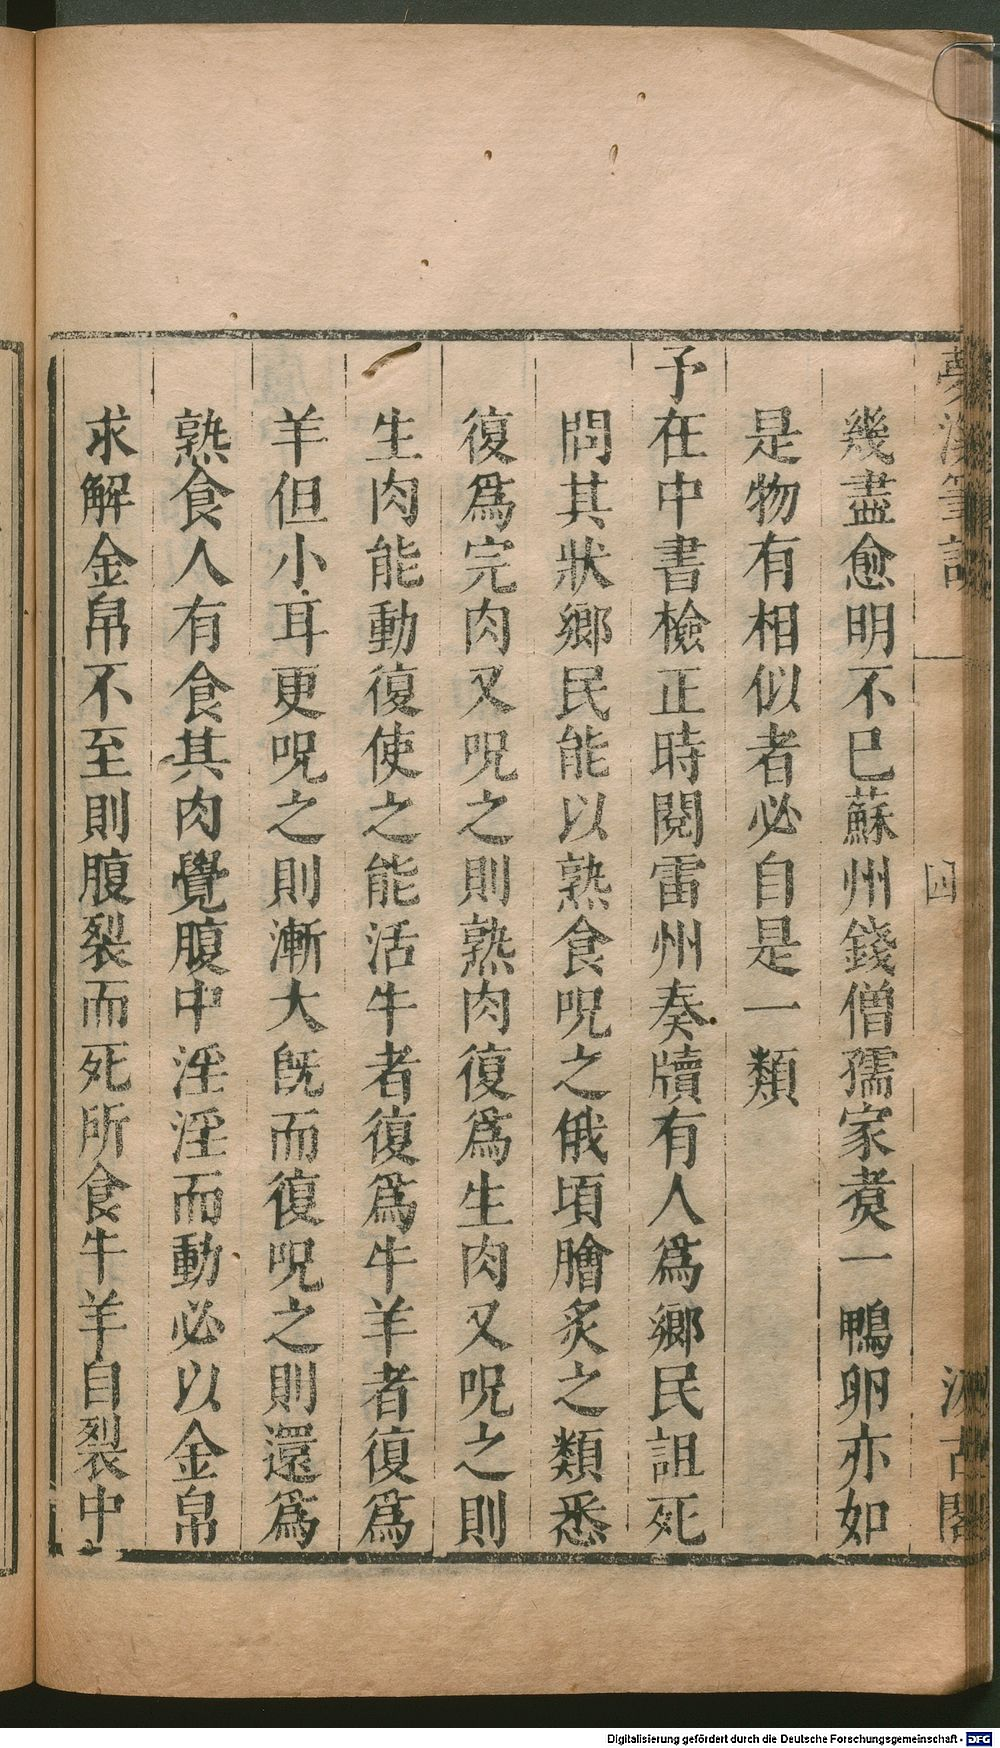 夢溪筆談
四
汲古閣
幾盡愈明不已蘇州錢僧孺家煑一鴨卵亦如
是物有相似者必自是一類
予在中書檢正時閱雷州奏牘有人爲鄉民詛死
問其狀鄉民能以熟食呪之俄頃膾炙之類悉
復爲完肉又呪之則熟肉復爲生肉又呪之則
生肉能動復使之能活牛者復爲牛羊者復爲
羊但小耳更呪之則漸大旣而復呪之則還爲
熟食人有食其肉覺腹中淫淫而動必以金帛
求解金帛不至則腹裂而死所食牛羊自裂中
Digitalisierung gefördert durch die Deutsche Forschungsgemeinschaft - DFG